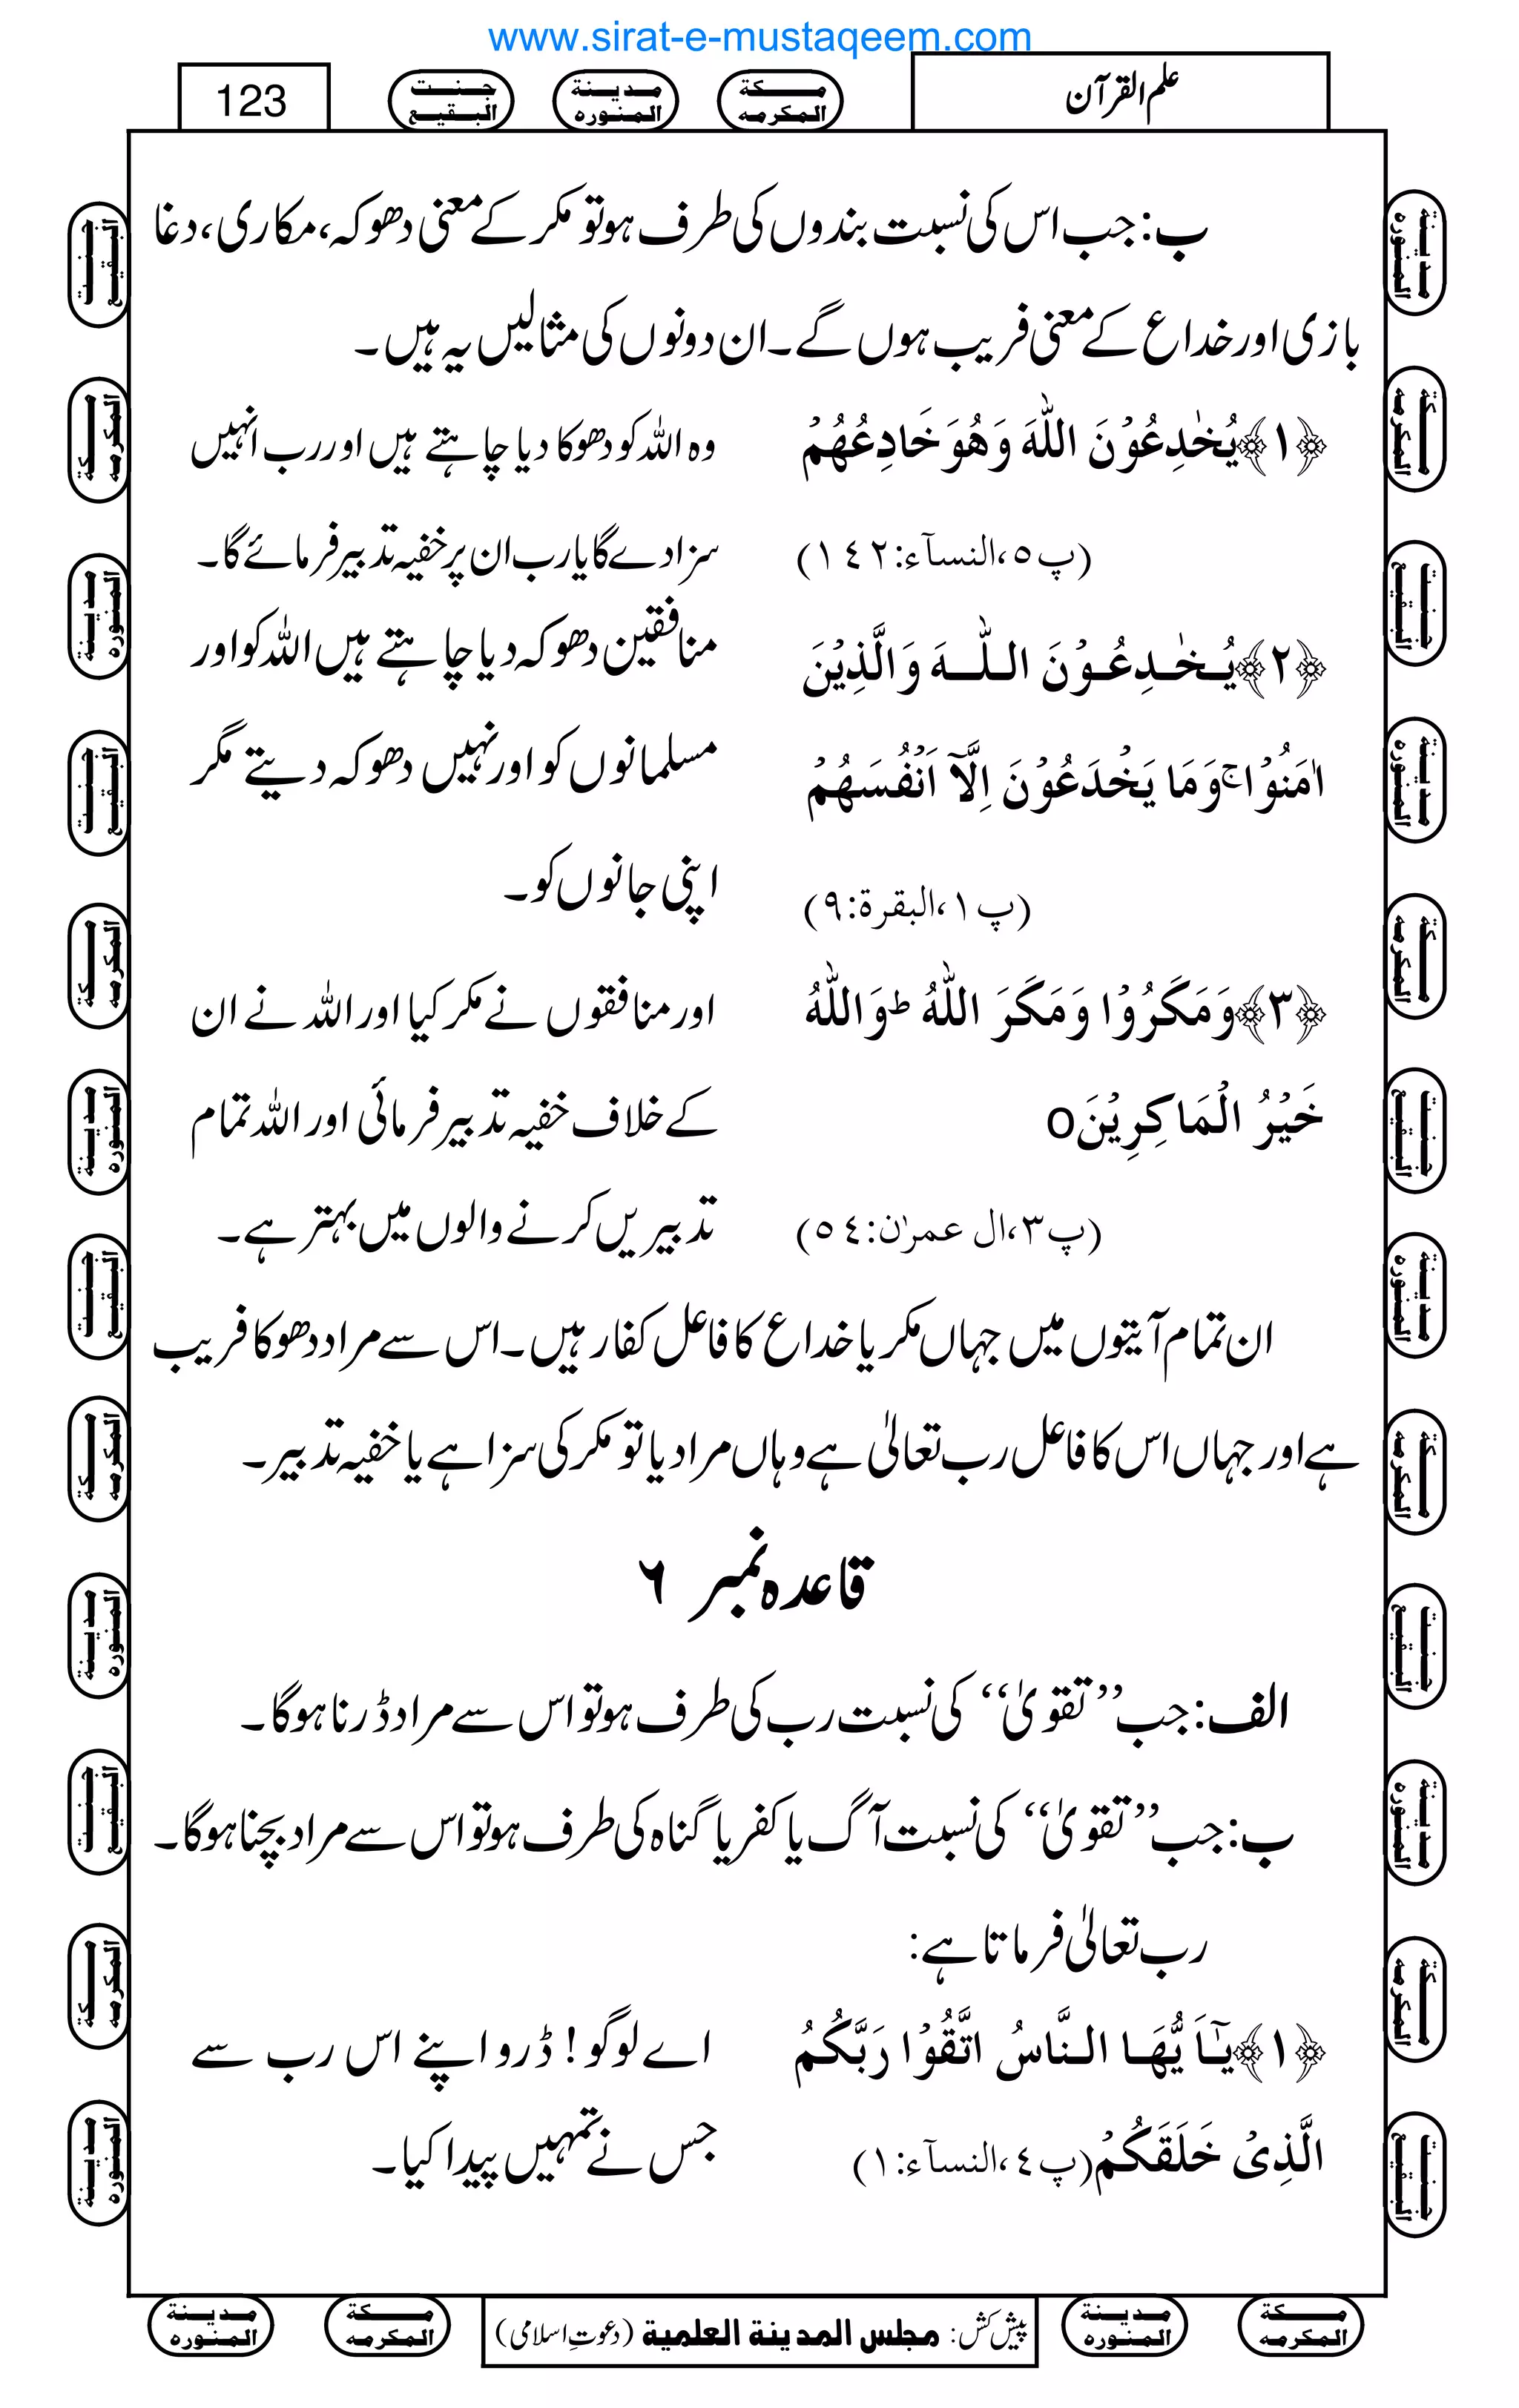 www.sirat-e-mustaqeem.com
علم القرآن
مكة المكرمه
مدينة المنوره
جنت البقيع
123
ب: جب اس کی نسبت بندوں کی طرف ہو تو مکر کے معنی دھوکہ، مکاری، دغا
بازی اور خداع کے معنی فریب ہوں گے۔ ان دونوں کی مثالیں یہ ہیں۔
﴿۱﴾ یُخٰدِعُوْنَ اللّٰهَ وَهُوَ خَادِعُهُمْ
(پ٥،النسآء:١٤٢)
وہ اللہ کو دھوکا دیا چاہتے ہیں اور رب انہیں
سزا دے گا یا رب ان پر خفیہ تدبیر فرمائے گا۔
﴿۲﴾ یُخٰدِعُوْنَ اللّٰهَ وَ الَّذِیْنَ
اٰمَنُوْا ۚ وَمَا یَخْدَعُوْنَ اِلَّاۤ اَنْفُسَهُمْ
(پ١،البقرة:٩)
منافقین دھوکہ دیا چاہتے ہیں اللہ کو اور
مسلمانوں کو اور نہیں دھوکہ دیتے مگر
اپنی جانوں کو۔
﴿۳﴾ وَمَكَرُوْا وَمَكَرَ اللّٰهُ ؕ وَاللّٰهُ
خَیْرُ الْمَاكِرِیْنَ o
(پ٣،ال عمرٰن:٥٤)
اور منافقوں نے مکر کیا اور اللہ نے ان
کے خلاف خفیہ تدبیر فرمائی اور اللہ تمام
تدبیریں کرنے والوں میں بہتر ہے۔
ان تمام آیتوں میں جہاں مکر یا خداع کا فاعل کفار ہیں۔ اس سے مراد دھوکا فریب
ہے اور جہاں اس کا فاعل رب تعالیٰ ہے وہاں مراد یا تو مکر کی سزا ہے یا خفیہ تدبیر۔
قاعدہ نمبر ۶
الف: جب ’’تقویٰ‘‘ کی نسبت رب کی طرف ہو تو اس سے مراد ڈرنا ہو گا۔
ب: جب ’’تقویٰ‘‘ کی نسبت آگ یا کفر یا گناہ کی طرف ہو تو اس سے مراد بچنا ہو گا۔
رب تعالیٰ فرماتا ہے:
﴿۱﴾ یٰۤاَیُّهَا النَّاسُ اتَّقُوْا رَبَّكُمُ
الَّذِیْ خَلَقَكُمْ (پ٤،النسآء:١)
اے لوگو! ڈرو اپنے اس رب سے
جس نے تمہیں پیدا کیا۔
مكة المكرمه
مدينة المنوره
پیش کش: مجلس المدينة العلمية (دعوتِ اسلامی)
مكة المكرمه
مدينة المنوره